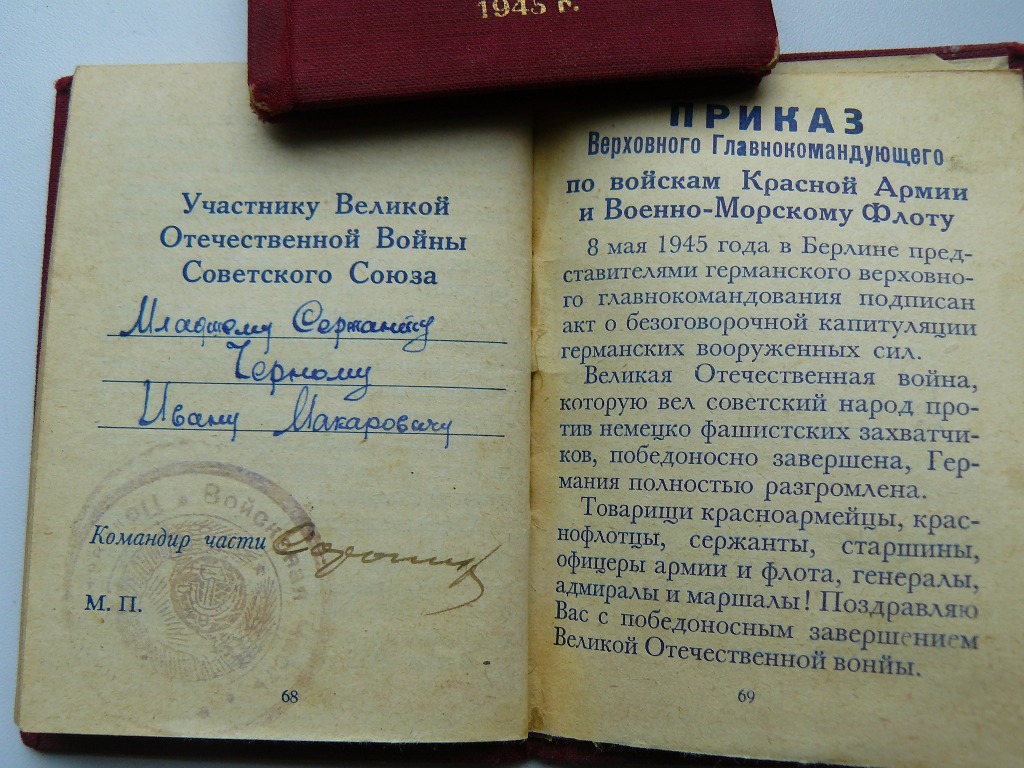 1945 г.
Участнику Великой
Отечественной Войны
Советского Союза
Младшему Сержанту
Черному
Ивану Макаровичу
Войсковая
Командир части
М. П.
68
ПРИКАЗ
Верховного Главнокомандующего
по войскам Красной Армии
и Военно-Морскому Флоту
8 мая 1945 года в Берлине пред-
ставителями германского верховно-
го главнокомандования подписан
акт о безоговорочной капитуляции
германских вооруженных сил.
Великая Отечественная война,
которую вел советский народ про-
тив немецко фашистских захватчи-
ков, победоносно завершена, Гер-
мания полностью разгромлена.
Товарищи красноармейцы, крас-
нофлотцы, сержанты, старшины,
офицеры армии и флота, генералы,
адмиралы и маршалы! Поздравляю
Вас с победоносным завершением
Великой Отечественной вонйы.
69